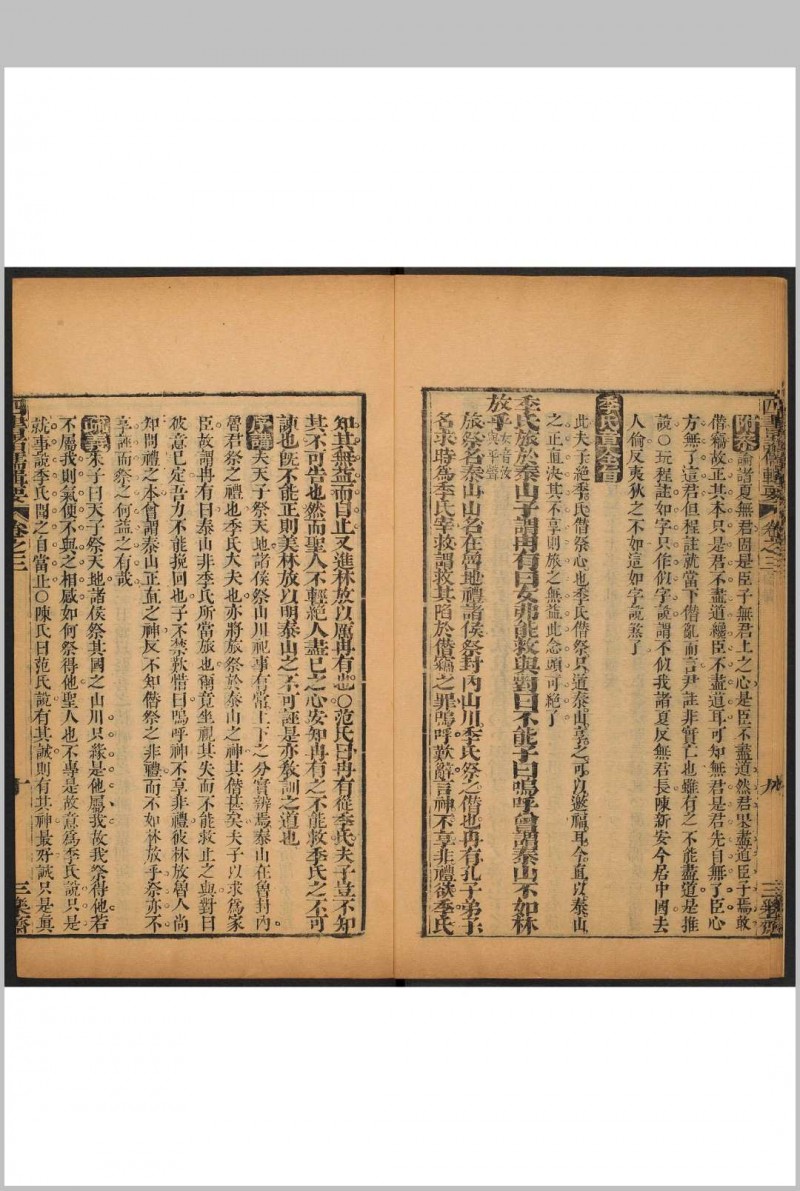 附參論諸夏無君固是臣子無君上之心是臣不盡道然君果盡道臣子焉敢
僭竊故正其本只是君不盡道纔臣不盡道耳可知無君是君先自無了臣心
方無了這君但程註就當下僭亂而言尹註非實亡也雖有之不能盡道是推
說○玩程註如字只作似字說謂不似我諸夏反無君長陳新安今居中國去
人倫反夷狄之不如這如字說煞了
季氏章全旨
此夫子絕季氏僭祭心也季氏僭祭只道泰山享之可以邀福耳今直以泰山
之正直決其不享則旅之無益此念頭可絕了
季氏旅於泰山子謂冉有曰女弗能救與對曰不能子曰嗚呼曾謂泰山不如林
放乎女音汝與平聲
旅祭名泰山山名在魯地禮諸侯祭封內山川季氏祭之僭也冉有孔子弟子
名求時為季氏宰救謂救其陷於僭竊之罪嗚呼歎辭言神不享非禮欲季氏
卷之三
九
知其無益而自止又進林放以厲冉有也○范氏曰冉有從季氏夫子豈不知
其不可告也然而聖人不輕絕人盡己之心安知冉有之不能救季氏之不可
諫也旣不能正則美林放以明泰山之不可誣是亦教訓之道也
夫天子祭天地諸侯祭山川祀事有常上下之分實辨焉泰山在魯封內
魯君祭之禮也季氏大夫也亦將旅祭於泰山之神其僭甚矣夫子以求為家
臣故謂冉有曰泰山非季氏所當旅也爾竟坐視其失而不能救止之與對曰
彼意已定吾力不能挽回也子不禁歎惜曰嗚呼神不享非禮彼林放魯人尚
知問禮之本曾謂泰山正直之神反不知僭祭之非禮而不如林放乎祭亦不
享誣而祭之何益之有哉
朱子曰天子祭天地諸侯祭其國之山川只緣是他屬我故我祭得他若
不屬我則氣便不與之相感如何祭得他聖人也不專是故意為季氏說只是
就事說季氏聞之自當止○陳氏曰范氏說有其誠則有其神最好誠只是真
卷之三
十